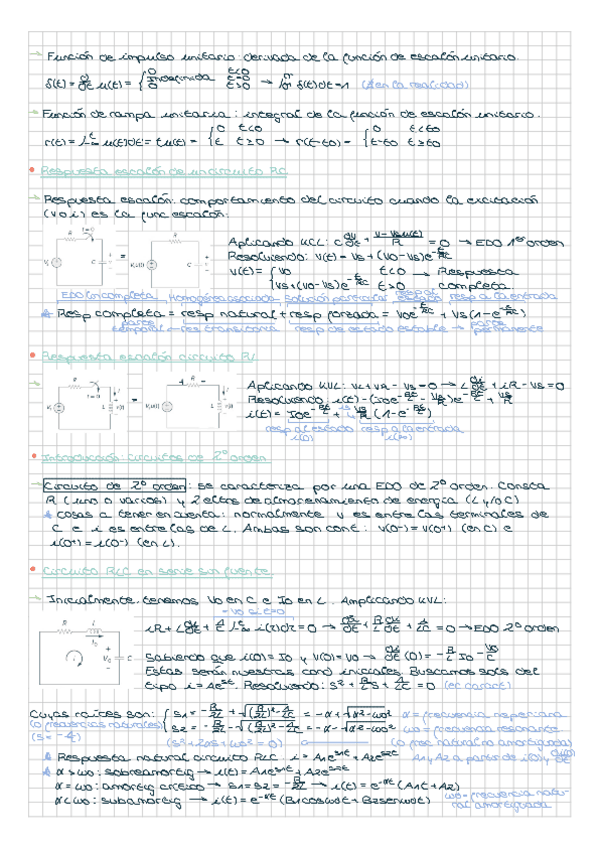 → Función de impulso unitario: derivada de la función de escalón unitario.
δ(t) = d/dt u(t) = { 0 t<0 ; Indefinida t=0 ; 0 t>0 → ∫ δ(t)dt = 1
→ Función de rampa unitaria: integral de la función de escalón unitario.
r(t) = ∫ u(t)dt = t u(t) = { 0 t<0 ; t t≥0 → r(t-t0) = { 0 t<t0 ; t-t0 t≥t0
• Respuesta escalón de un circuito RC
→ Respuesta escalón: comportamiento del circuito cuando la excitación
(v o i) es la func escalón:
Aplicando KCL: C dv/dt + (v - Vs u(t))/R = 0 → EDO 1er orden.
Resolviendo: v(t) = Vs + (V0-Vs)e^-t/RC
v(t) = { V0 t<0 ; Vs+(V0-Vs)e^-t/RC t>0 → Respuesta completa.
EDO incompleta Homogénea asociada Solución particular resp al estado resp a la entrada
Resp completa = resp natural + resp forzada = V0e^-t/RC + Vs(1-e^-t/RC)
parte temporal ← res transitoria resp de estado estable → parte permanente
• Respuesta escalón circuito RL
Aplicando KVL: VL+VR-Vs=0 → L di/dt + iR - Vs = 0
Resolviendo: i(t) = (I0 - Vs/R)e^-Rt/L + Vs/R
i(t) = I0e^-Rt/L + Vs/R (1-e^-Rt/L)
resp al estado resp a la entrada
i(0) i(∞)
• Introducción: circuitos de 2º orden
→ Circuito de 2º orden: se caracteriza por una EDO de 2º orden. Consta
R (uno o varios) y 2 eltos de almacenamiento de energía (L y/o C)
cosas a tener en cuenta: normalmente v es entre las terminales de
C e i es entre las de L. Ambas son cont: v(0-) = v(0+) (en C) e
i(0+) = i(0-) (en L).
• Circuito RLC en serie sin fuente
→ Inicialmente, tenemos V0 en C e I0 en L. Amplicando KVL:
-V0 si t=0
iR + L di/dt + 1/C ∫ i(τ)dτ = 0 → d²i/dt² + R/L di/dt + i/LC = 0 → EDO 2º orden
Sabiendo que i(0) = I0 y V(0) = V0 → di/dt (0) = -R/L I0 - V0/L
Estas serán nuestras cond iniciales. Buscamos sols del
tipo i = Ae^st. Resolviendo: s² + R/L s + 1/LC = 0 (ec caract)
Cuyas raíces son: { s1 = -R/2L + √((R/2L)²-1/LC) = -α+√(α²-ω0²) α = frecuencia neperiana
(o frecuencias naturales) s2 = -R/2L - √((R/2L)²-1/LC) = -α-√(α²-ω0²) ω0 = frecuencia resonante
(s²+2αs+ω0² = 0) (o frec natural no amortiguada)
Respuesta natural circuito RLC i = A1e^s1t + A2e^s2t A1 y A2 a partir de i(0) y di(0)/dt
α > ω0: sobreamortig → i(t) = A1e^s1t + A2e^s2t
α = ω0: amortig crítico → s1 = s2 = -R/2L → i(t) = e^-αt (A1t + A2)
α < ω0: subamortig → i(t) = e^-αt (B1cosωdt + B2senωdt)